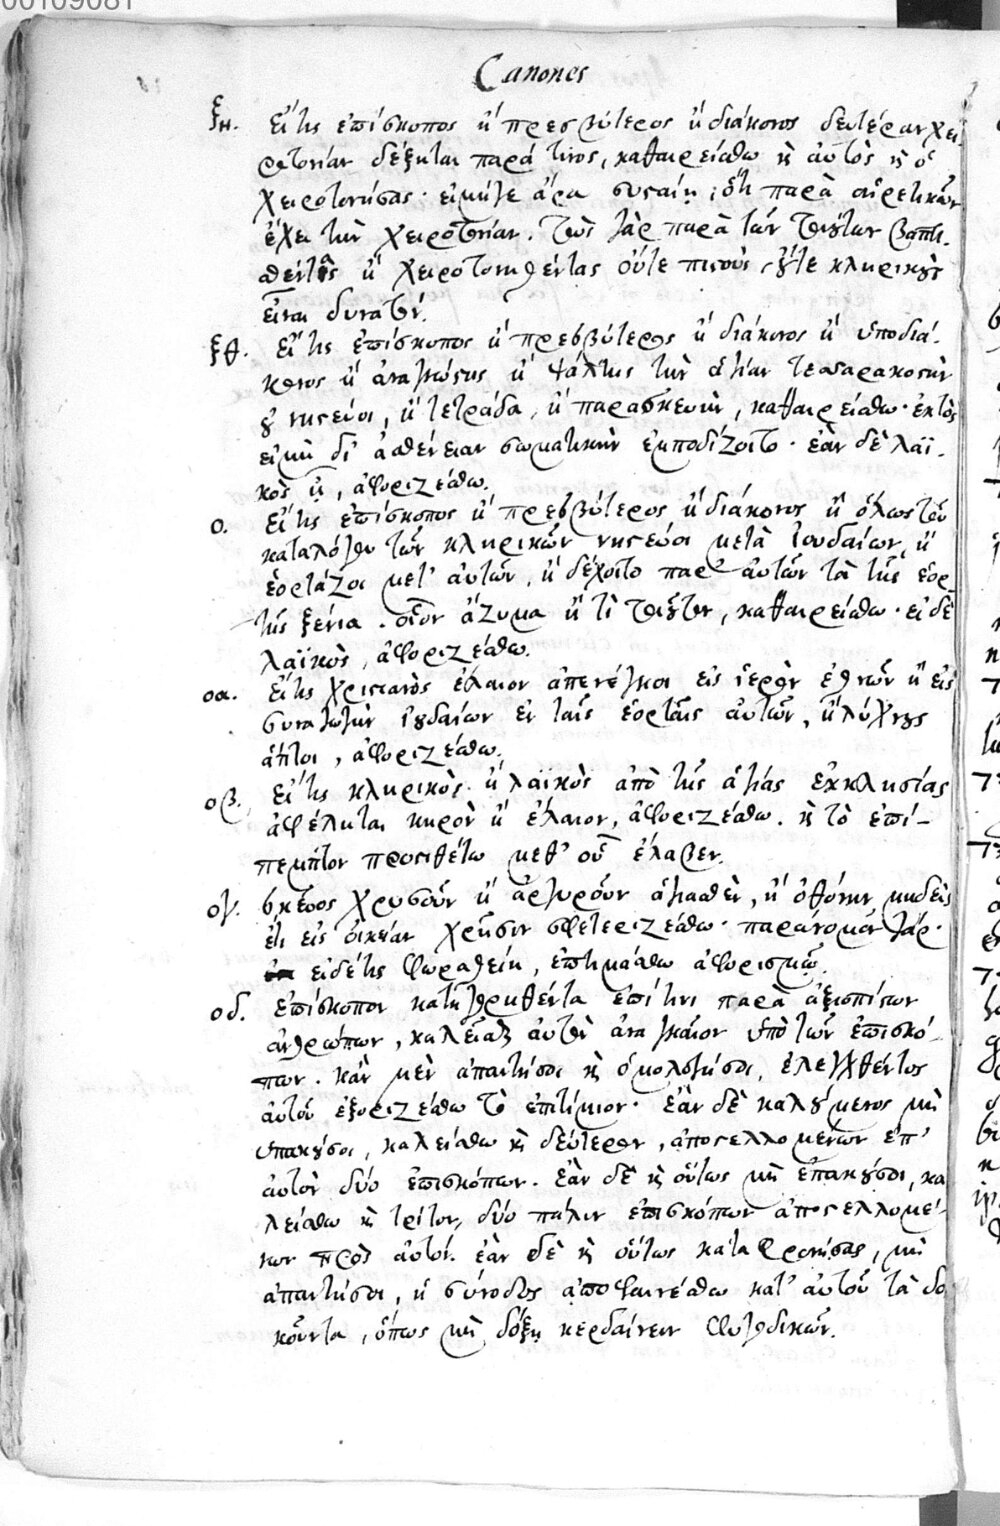 00109081
Canones
ξη. Εἴ τις ἐπίσκοπος ἢ πρεσβύτερος ἢ διάκονος δευτέραν χει-
ροτονίαν δέξηται παρά τινος, καθαιρείσθω κ̀ αὐτὸς κ̀ ὁ
χειροτονήσας· εἰ μήγε ἄρα συσταίη, ὅτι παρὰ αἱρετικῶν
ἔχει τὴν χειροτονίαν. τοὺς γὰρ παρὰ τῶν τοιούτων βαπτι-
σθέντας ἢ χειροτονηθέντας οὔτε πιστοὺς οὔτε κληρικοὺς
εἶναι δυνατόν.
ξθ. Εἴ τις ἐπίσκοπος ἢ πρεσβύτερος ἢ διάκονος ἢ ὑποδιά-
κονος ἢ ἀναγνώστης ἢ ψάλτης τὴν ἁγίαν τεσσαρακοστὴν
οὐ νηστεύοι, ἢ τετράδα, ἢ παρασκευὴν, καθαιρείσθω· ἐκτὸς
εἰ μὴ δι' ἀσθένειαν σωματικὴν ἐμποδίζοιτο· ἐὰν δὲ λαϊ-
κὸς ᾖ, ἀφοριζέσθω.
ο. Εἴ τις ἐπίσκοπος ἢ πρεσβύτερος ἢ διάκονος ἢ ὅλως τοῦ
καταλόγου τῶν κληρικῶν νηστεύοι μετὰ Ἰουδαίων, ἢ
ἑορτάζοι μετ' αὐτῶν, ἢ δέχοιτο παρ' αὐτῶν τὰ τῆς ἑορ
τῆς ξένια. οἷον ἄζυμα ἤ τι τοιοῦτον, καθαιρείσθω· εἰ δὲ
λαϊκὸς, ἀφοριζέσθω.
οα. Εἴ τις χριστιανὸς ἔλαιον ἀπενέγκοι εἰς ἱερὸν ἐθνῶν ἢ εἰς
συναγωγὴν ἰουδαίων ἐν ταῖς ἑορταῖς αὐτῶν, ἢ λύχνους
ἅπτοι, ἀφοριζέσθω.
οβ. Εἴ τις κληρικὸς ἢ λαϊκὸς ἀπὸ τῆς ἁγίας ἐκκλησίας
ἀφέληται κηρὸν ἢ ἔλαιον, ἀφοριζέσθω. κ̀ τὸ ἐπί-
πεμπτον προστιθέτω μεθ' οὗ ἔλαβεν.
ογ. σκεῦος χρυσοῦν ἢ ἀργυροῦν ἁγιασθὲν, ἢ ὀθόνην μηδεὶς
ἔτι εἰς οἰκείαν χρῆσιν σφετεριζέσθω· παράνομον γάρ·
εἰ δέ τις φωραθείη, ἐπιτιμάσθω ἀφορισμῷ.
οδ. ἐπίσκοπον κατηγορηθέντα ἐπί τινι παρὰ ἀξιοπίστων
ἀνθρώπων, καλεῖσθαι αὐτὸν ἀναγκαῖον ὑπὸ τῶν ἐπισκό-
πων. κἂν μὲν ἀπαντήσοι κ̀ ὁμολογήσοι, ἐλεγχθέντος
αὐτοῦ ἐξοριζέσθω τὸ ἐπιτίμιον· ἐὰν δὲ καλούμενος μὴ
ὑπακούσοι, καλείσθω κ̀ δεύτερον, ἀποστελλομένων ἐπ'
αὐτὸν δύο ἐπισκόπων. ἐὰν δὲ κ̀ οὕτως μὴ ὑπακούσοι, κα
λείσθω κ̀ τρίτον, δύο πάλιν ἐπισκόπων ἀποστελλομέ-
νων πρὸς αὐτόν. ἐὰν δὲ κ̀ οὕτως καταφρονήσας, μὴ
ἀπαντήσοι, ἡ σύνοδος ἀποφαινέσθω κατ' αὐτοῦ τὰ δο
κοῦντα, ὅπως μὴ δόξῃ κερδαίνειν φυγοδικῶν.